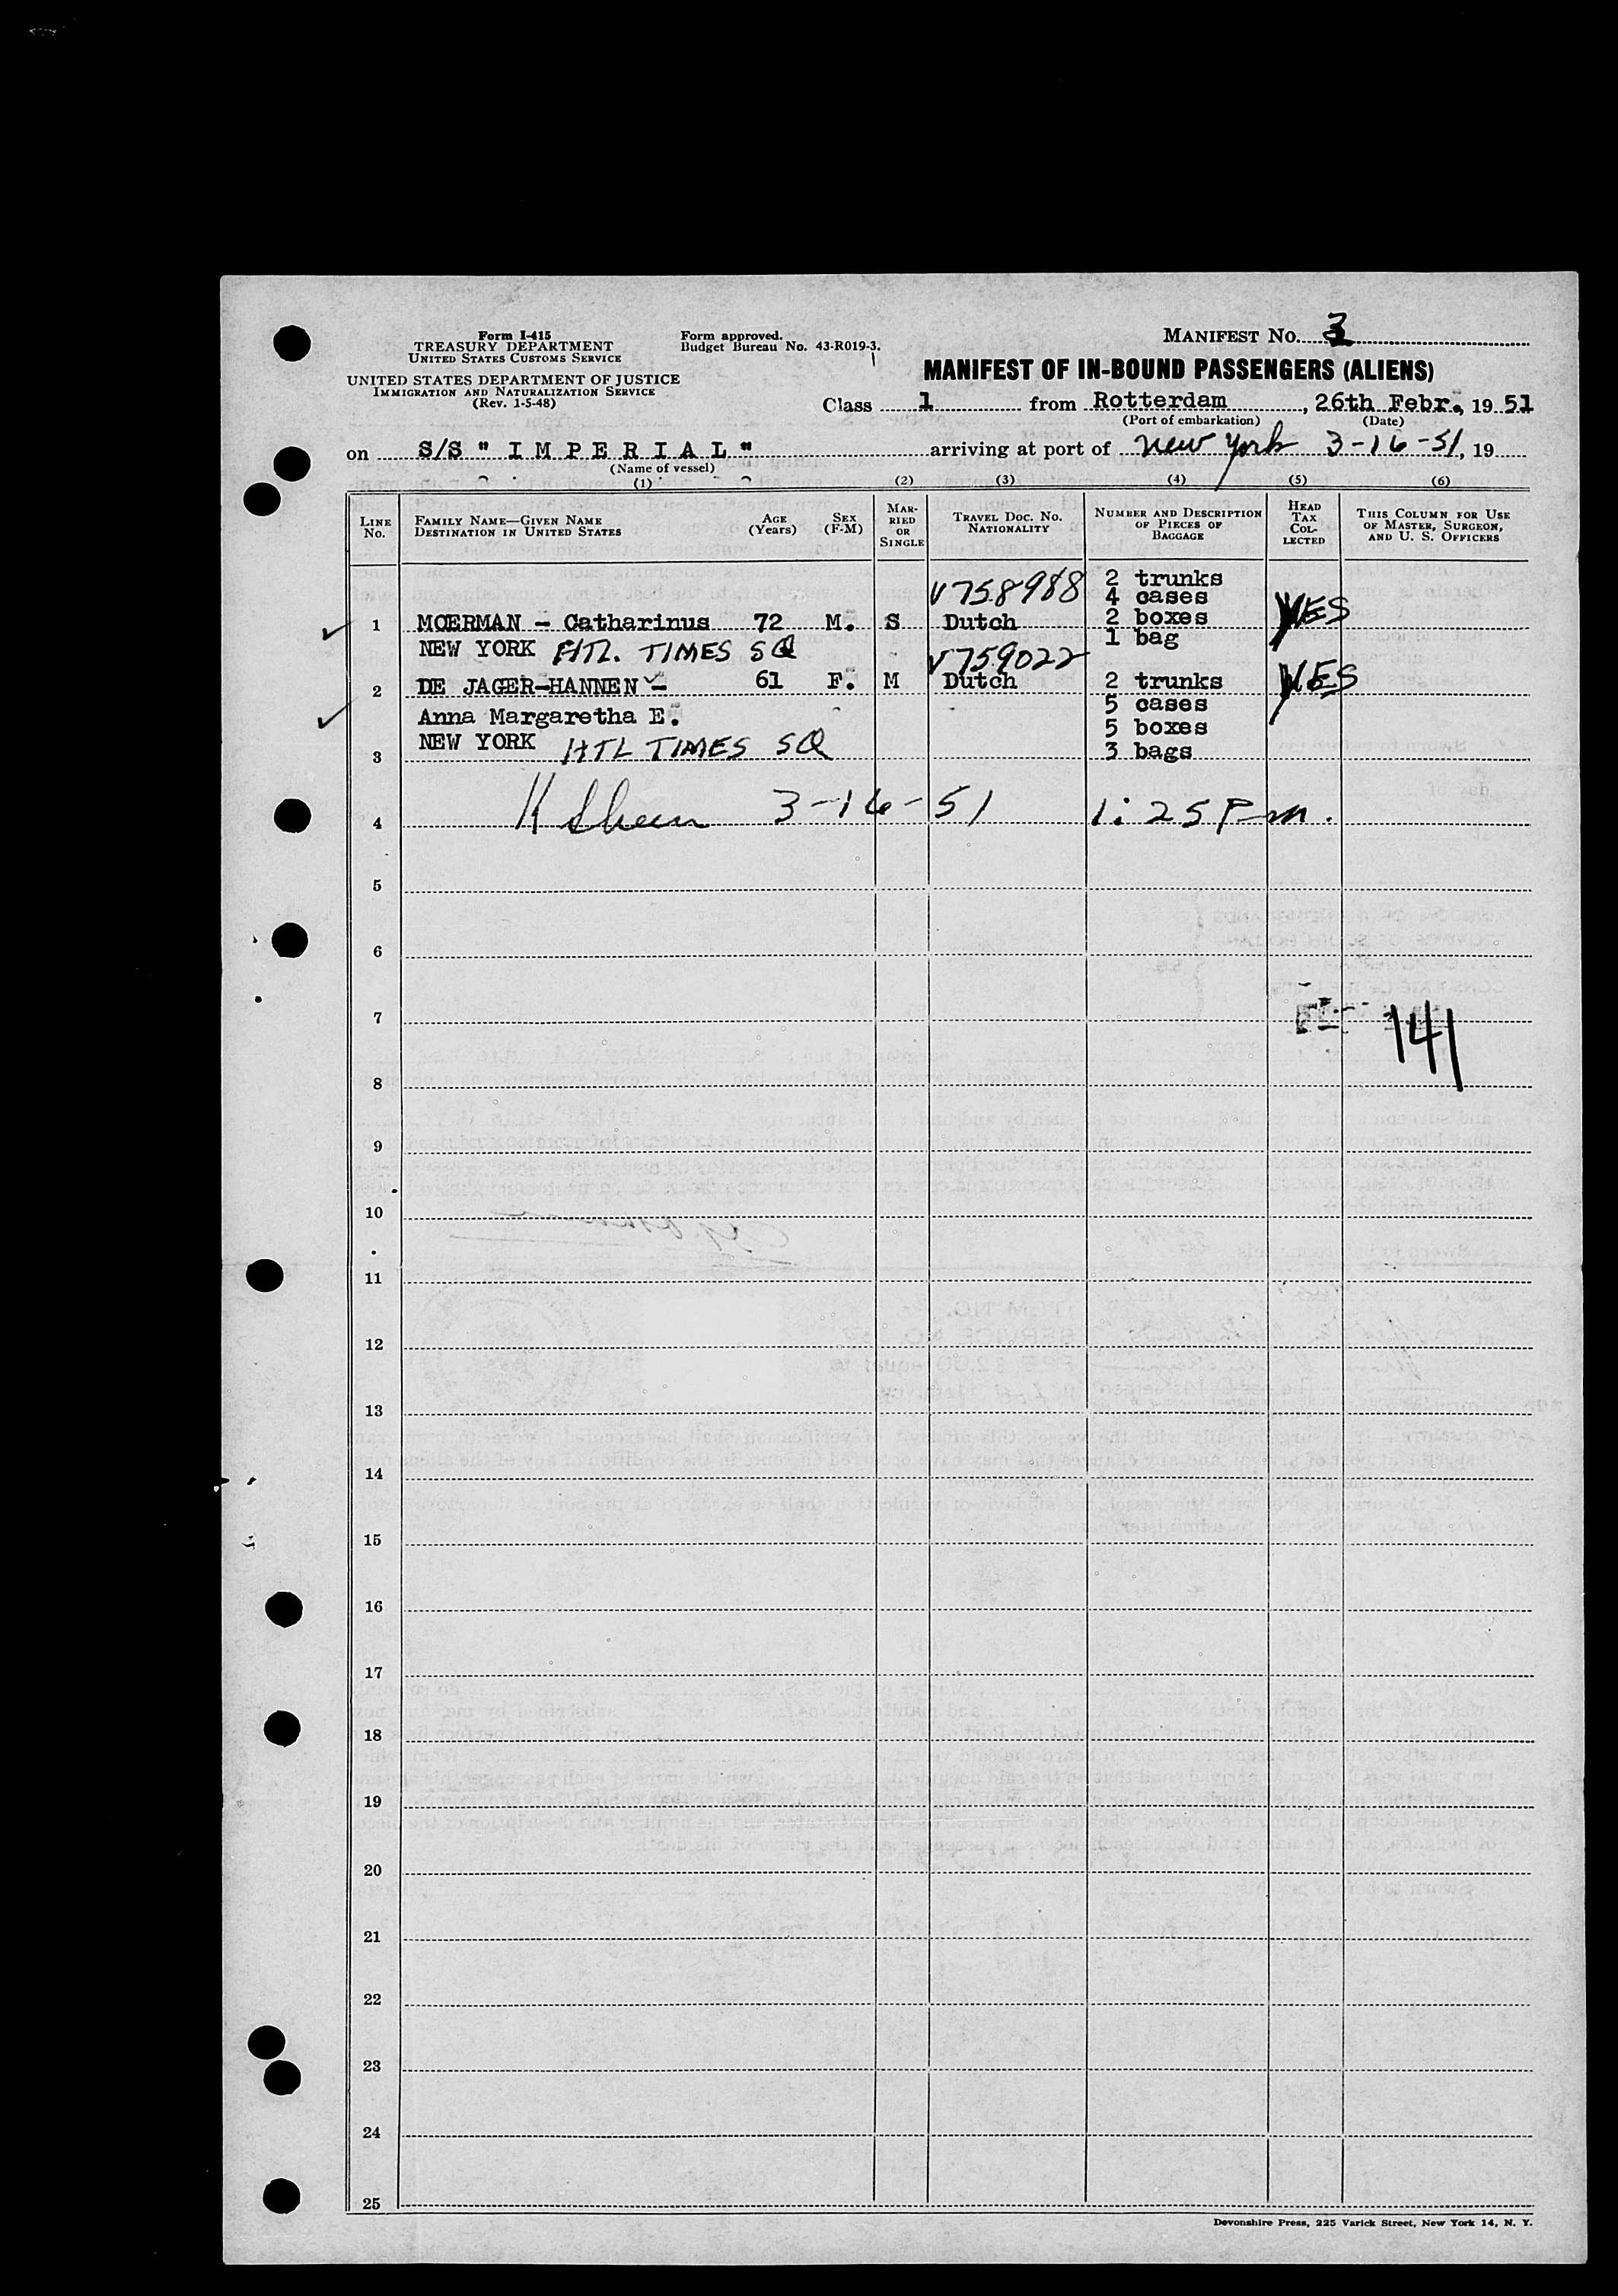 Form I-415
TREASURY DEPARTMENT
UNITED STATES CUSTOMS SERVICE
UNITED STATES DEPARTMENT OF JUSTICE
IMMIGRATION AND NATURALIZATION SERVICE
(Rev. 1-5-48)
Form approved.
Budget Bureau No. 43-R019-3.
MANIFEST No. 3
MANIFEST OF IN-BOUND PASSENGERS (ALIENS)
Class 1 from Rotterdam, 26th Febr., 19 51
(Port of embarkation) (Date)
on S/S " I M P E R I A L " arriving at port of New York 3-16-51, 19
(Name of vessel)
(1) (2) (3) (4) (5) (6)
LINE No. FAMILY NAME—GIVEN NAME DESTINATION IN UNITED STATES AGE (Years) SEX (F-M) MARRIED OR SINGLE TRAVEL DOC. NO. NATIONALITY NUMBER AND DESCRIPTION OF PIECES OF BAGGAGE HEAD TAX COLLECTED THIS COLUMN FOR USE OF MASTER, SURGEON, AND U. S. OFFICERS
V758988 2 trunks
4 cases
1 MOERMAN - Catharinus 72 M. S Dutch 2 boxes YES
NEW YORK HTL. TIMES SQ 1 bag
V759022
2 DE JAGER-HANNEN - 61 F. M Dutch 2 trunks YES
5 cases
Anna Margaretha E. 5 boxes
3 NEW YORK HTL TIMES SQ 3 bags
4 3-16-51 1:25 P m.
5
6
7 141
8
9
10
11
12
13
14
15
16
17
18
19
20
21
22
23
24
25
Devonshire Press, 225 Varick Street, New York 14, N. Y.